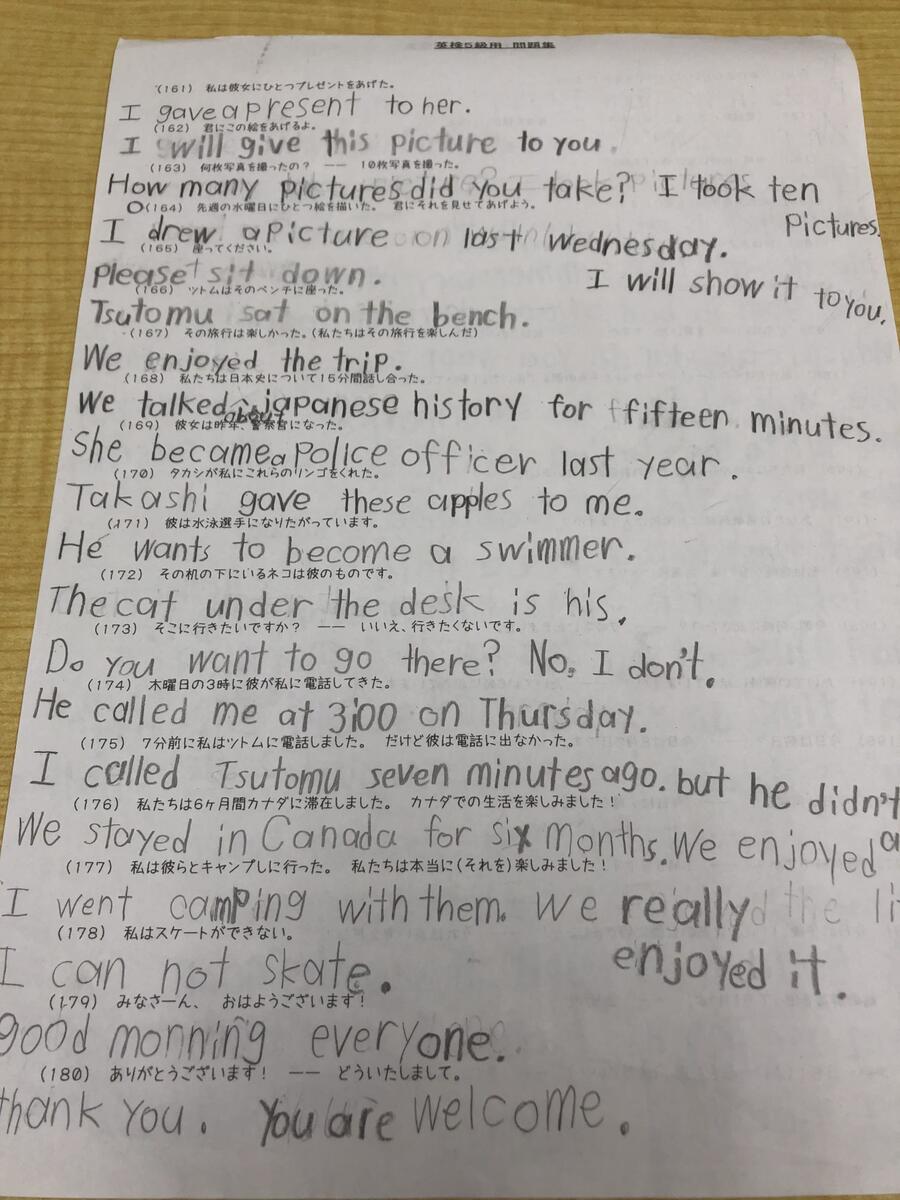 英検5級用 問題集
(161) 私は彼女にひとつプレゼントをあげた。
I gave a present to her.
(162) 君にこの絵をあげるよ。
I will give this picture to you.
(163) 何枚写真を撮ったの? ―― 10枚写真を撮った。
How many pictures did you take? I took ten
pictures.
(164) 先週の水曜日にひとつ絵を描いた。 君にそれを見せてあげよう。
I drew a picture on last wednesday.
I will show it to you.
(165) 座ってください。
please sit down.
(166) ツトムはそのベンチに座った。
Tsutomu sat on the bench.
(167) その旅行は楽しかった。(私たちはその旅行を楽しんだ)
We enjoyed the trip.
(168) 私たちは日本史について15分間話し合った。
We talked about japanese history for fifteen minutes.
(169) 彼女は昨年、警察官になった。
She became a police officer last year.
(170) タカシが私にこれらのリンゴをくれた。
Takashi gave these apples to me.
(171) 彼は水泳選手になりたがっています。
He wants to become a swimmer.
(172) その机の下にいるネコは彼のものです。
The cat under the desk is his.
(173) そこに行きたいですか? ―― いいえ、行きたくないです。
Do you want to go there? No, I don't.
(174) 木曜日の3時に彼が私に電話してきた。
He called me at 3:00 on Thursday.
(175) 7分前に私はツトムに電話しました。 だけど彼は電話に出なかった。
I called Tsutomu seven minutes ago. but he didn't
(176) 私たちは6ヶ月間カナダに滞在しました。 カナダでの生活を楽しみました!
We stayed in Canada for six months. We enjoyed
(177) 私は彼らとキャンプしに行った。 私たちは本当に(それを)楽しみました!
I went camping with them. We really
enjoyed it.
(178) 私はスケートができない。
I can not skate.
(179) みなさーん、 おはようございます!
good monning everyone.
(180) ありがとうございます! ―― どういたしまして。
thank you. You are welcome.